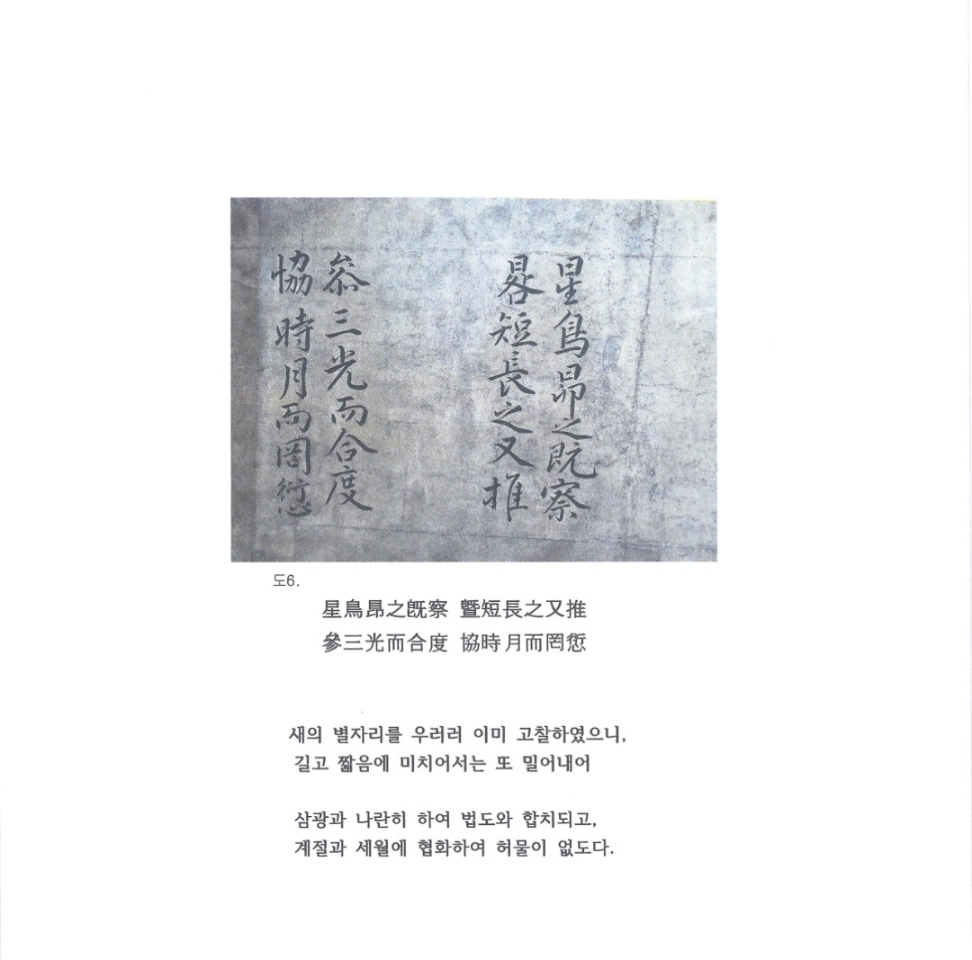 星鳥昴之既察
晷短長之又推
叅三光而合度
恊時月而罔愆
도6.
星鳥昂之旣察 曁短長之又推
參三光而合度 協時月而罔愆
새의 별자리를 우러러 이미 고찰하였으니,
길고 짧음에 미치어서는 또 밀어내어
삼광과 나란히 하여 법도와 합치되고,
계절과 세월에 협화하여 허물이 없도다.